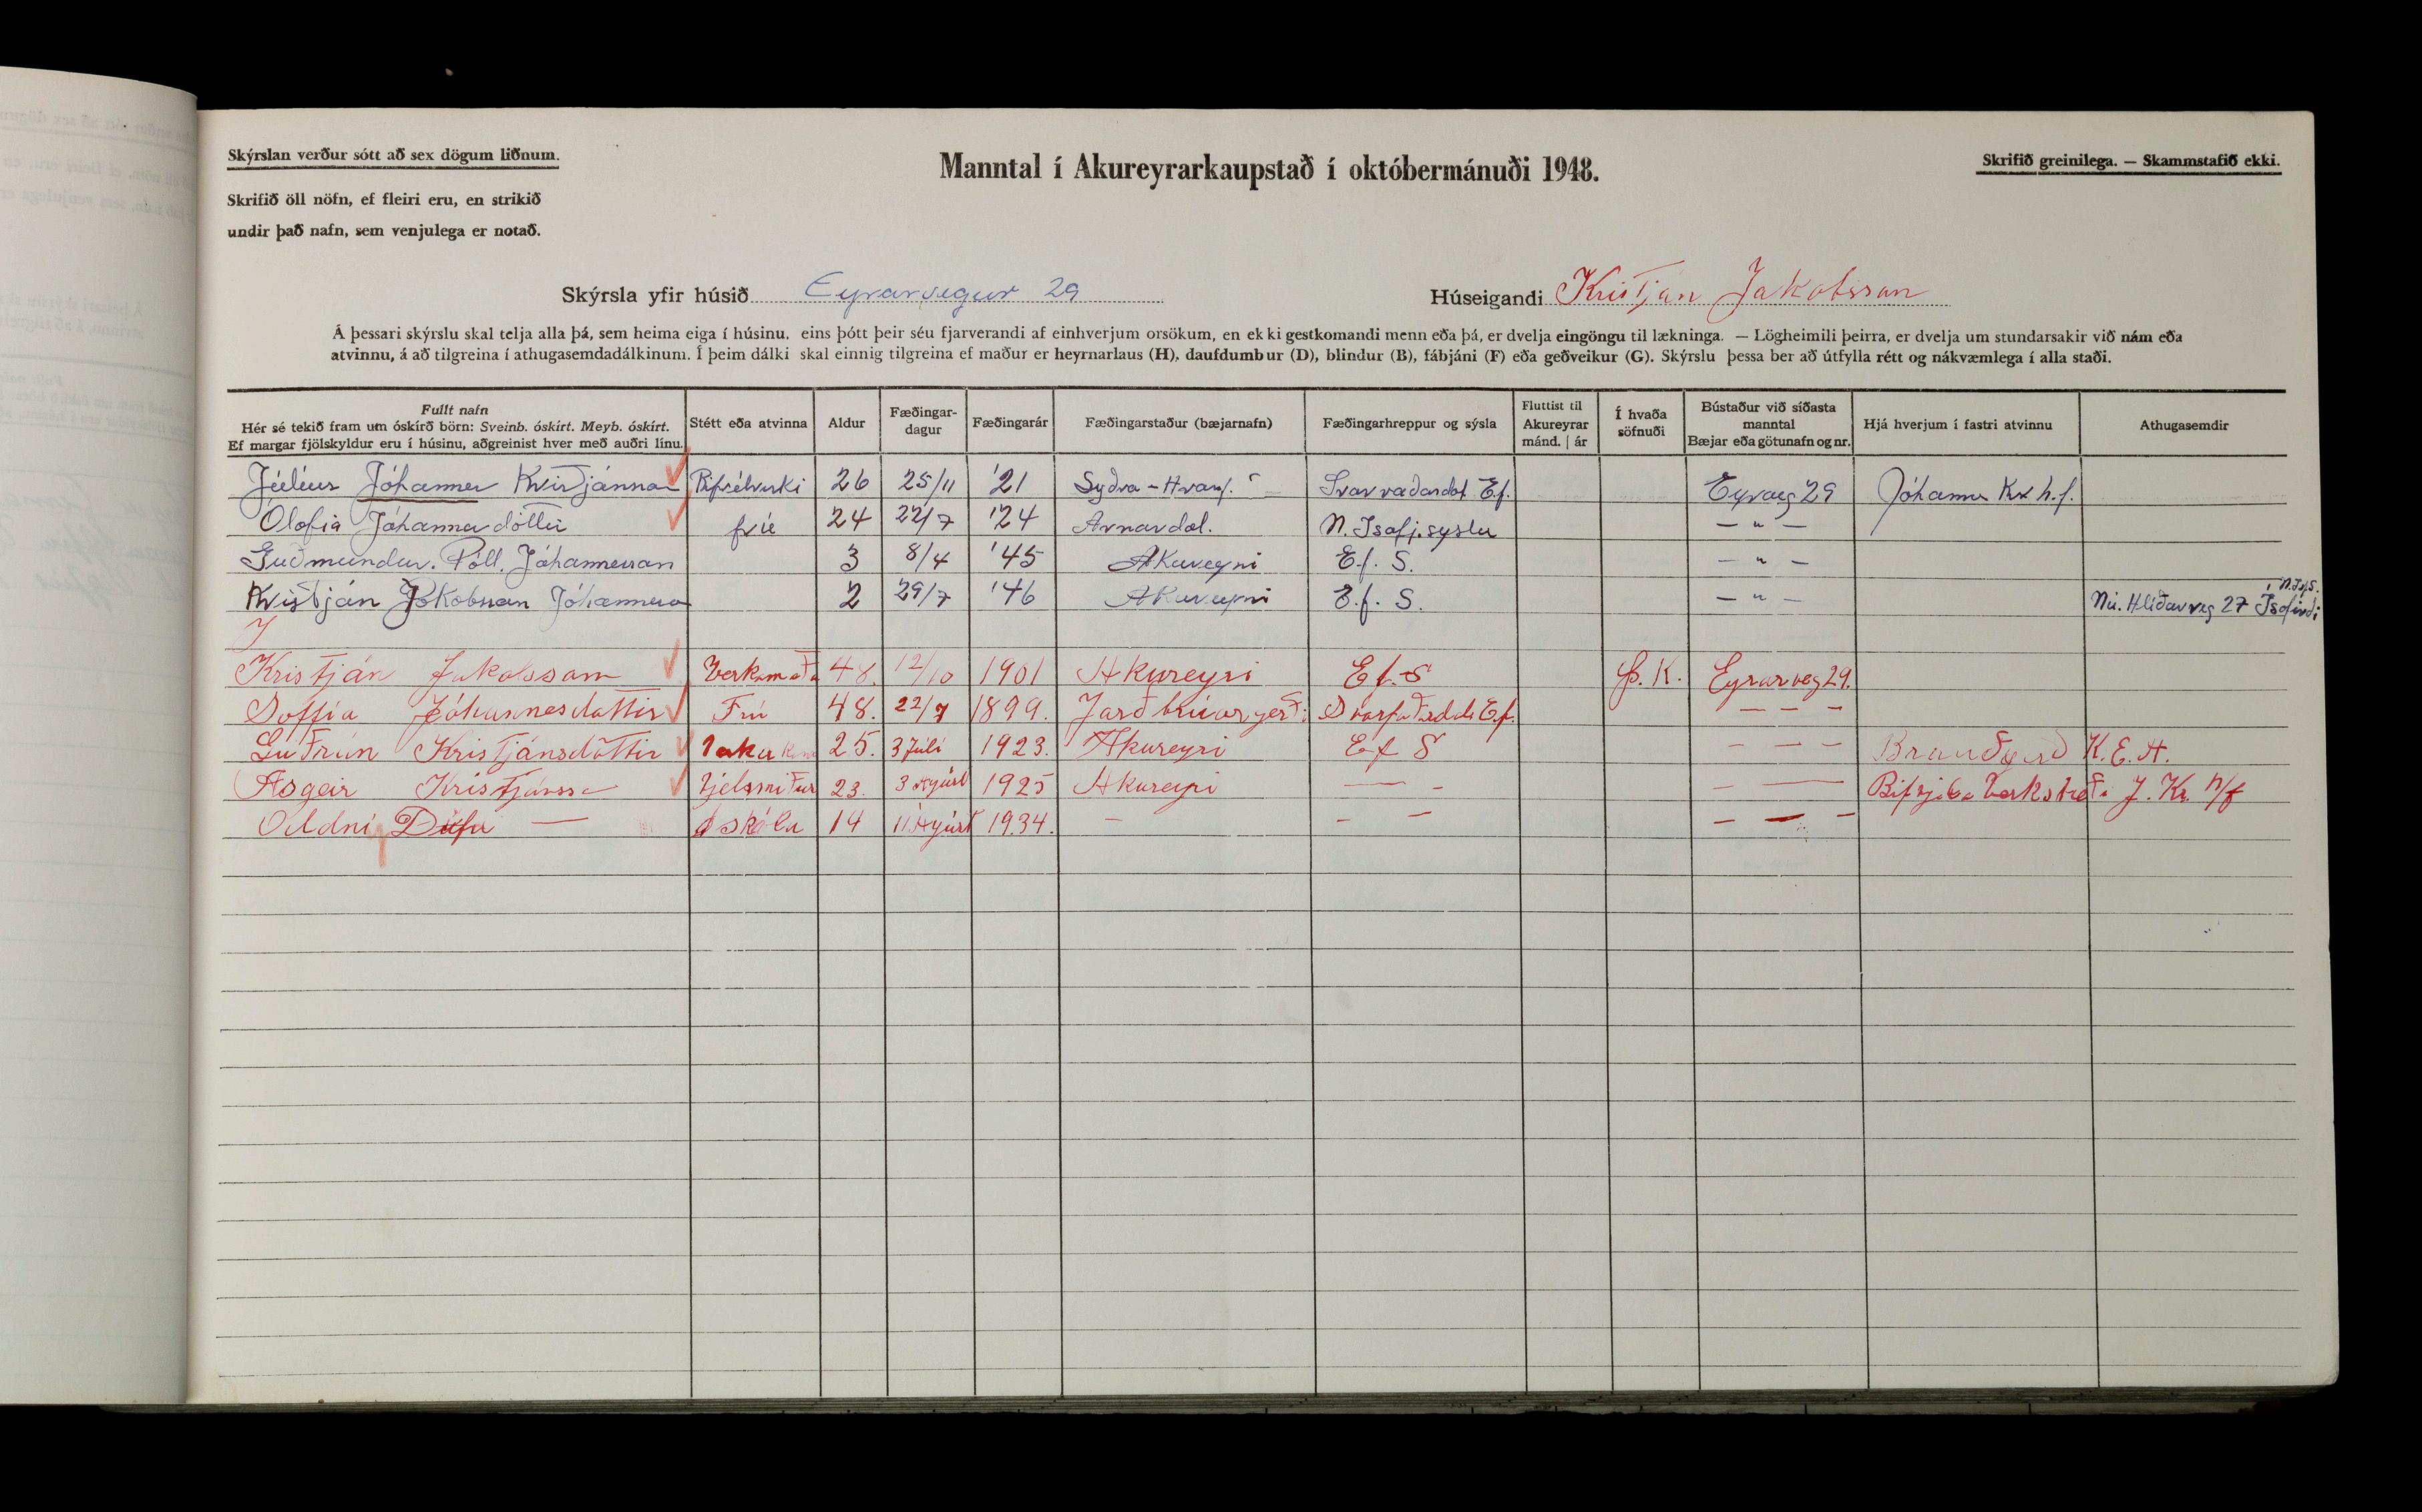 Skýrslan verður sótt að sex dögum liðnum.
Skrifið öll nöfn, ef fleiri eru, en strikið
undir það nafn, sem venjulega er notað.
Manntal í Akureyrarkaupstað í októbermánuði 1948.
Skrifið greinilega. — Skammstafið ekki.
Skýrsla yfir húsið Eyrarvegur 29 Húseigandi Kristján Jakobsson
Á þessari skýrslu skal telja alla þá, sem heima eiga í húsinu, eins þótt þeir séu fjarverandi af einhverjum orsökum, en ekki gestkomandi menn eða þá, er dvelja eingöngu til lækninga. — Lögheimili þeirra, er dvelja um stundarsakir við nám eða
atvinnu, á að tilgreina í athugasemdadálkinum. Í þeim dálki skal einnig tilgreina ef maður er heyrnarlaus (H), daufdumbur (D), blindur (B), fábjáni (F) eða geðveikur (G). Skýrslu þessa ber að útfylla rétt og nákvæmlega í alla staði.
Fullt nafn
Hér sé tekið fram um óskírð börn: Sveinb. óskírt. Meyb. óskírt.
Ef margar fjölskyldur eru í húsinu, aðgreinist hver með auðri línu.
Stétt eða atvinna
Aldur
Fæðingar-
dagur
Fæðingarár
Fæðingarstaður (bæjarnafn)
Fæðingarhreppur og sýsla
Fluttist til
Akureyrar
mánd. | ár
Í hvaða
söfnuði
Bústaður við síðasta
manntal
Bæjar eða götunafn og nr.
Hjá hverjum í fastri atvinnu
Athugasemdir
Júlíus Jóhannes Kristjánsson Bifvélvirki 26 25/11 '21 Syðra-Hvarf Svarvaðardal Ef. Eyrveg 29 Jóhannes Kr h.f.
Ólofía Jóhannesdóttir frú 24 22/7 '24 Arnardal. N. Ísafj.sýslu — " —
Guðmundur. Páll. Jóhannesson 3 8/4 '45 Akureyri E.f. S. — " —
Kristján Jakobsson Jóhannesso 2 29/7 '46 Akureyri E.f. S. — " — Nú. Hlíðarveg 27 Ísafirði N.Ísf.S.
Kristján Jakobsson Verkam 48. 12/10 1901 Akureyri Ef. S Þ. K. Eyrarveg 29.
Soffía Jóhannesdóttir Frú 48. 22/7 1899. Jarðbrúargerði Svarfaðrdal Ef. — — —
Guðrún Kristjánsdóttir 25. 3 Júlí 1923. Akureyri Ef S — — — Brauðgerð K. E. A.
Ásgeir Kristjánss 23. 3 Ágúst 1925 Akureyri — - — — Bifvjela Verkstæði J. Kr. h/f
Oddný Dúfa — Í skóla 14 11 Ágúst 1934. — — — — — —